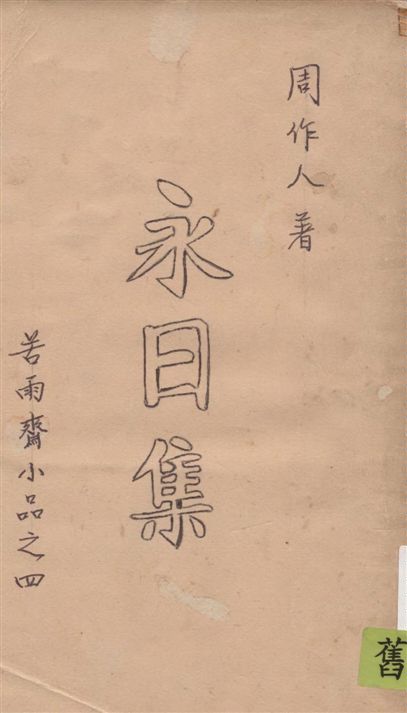 周作人著
永日集
苦雨齋小品之四
舊